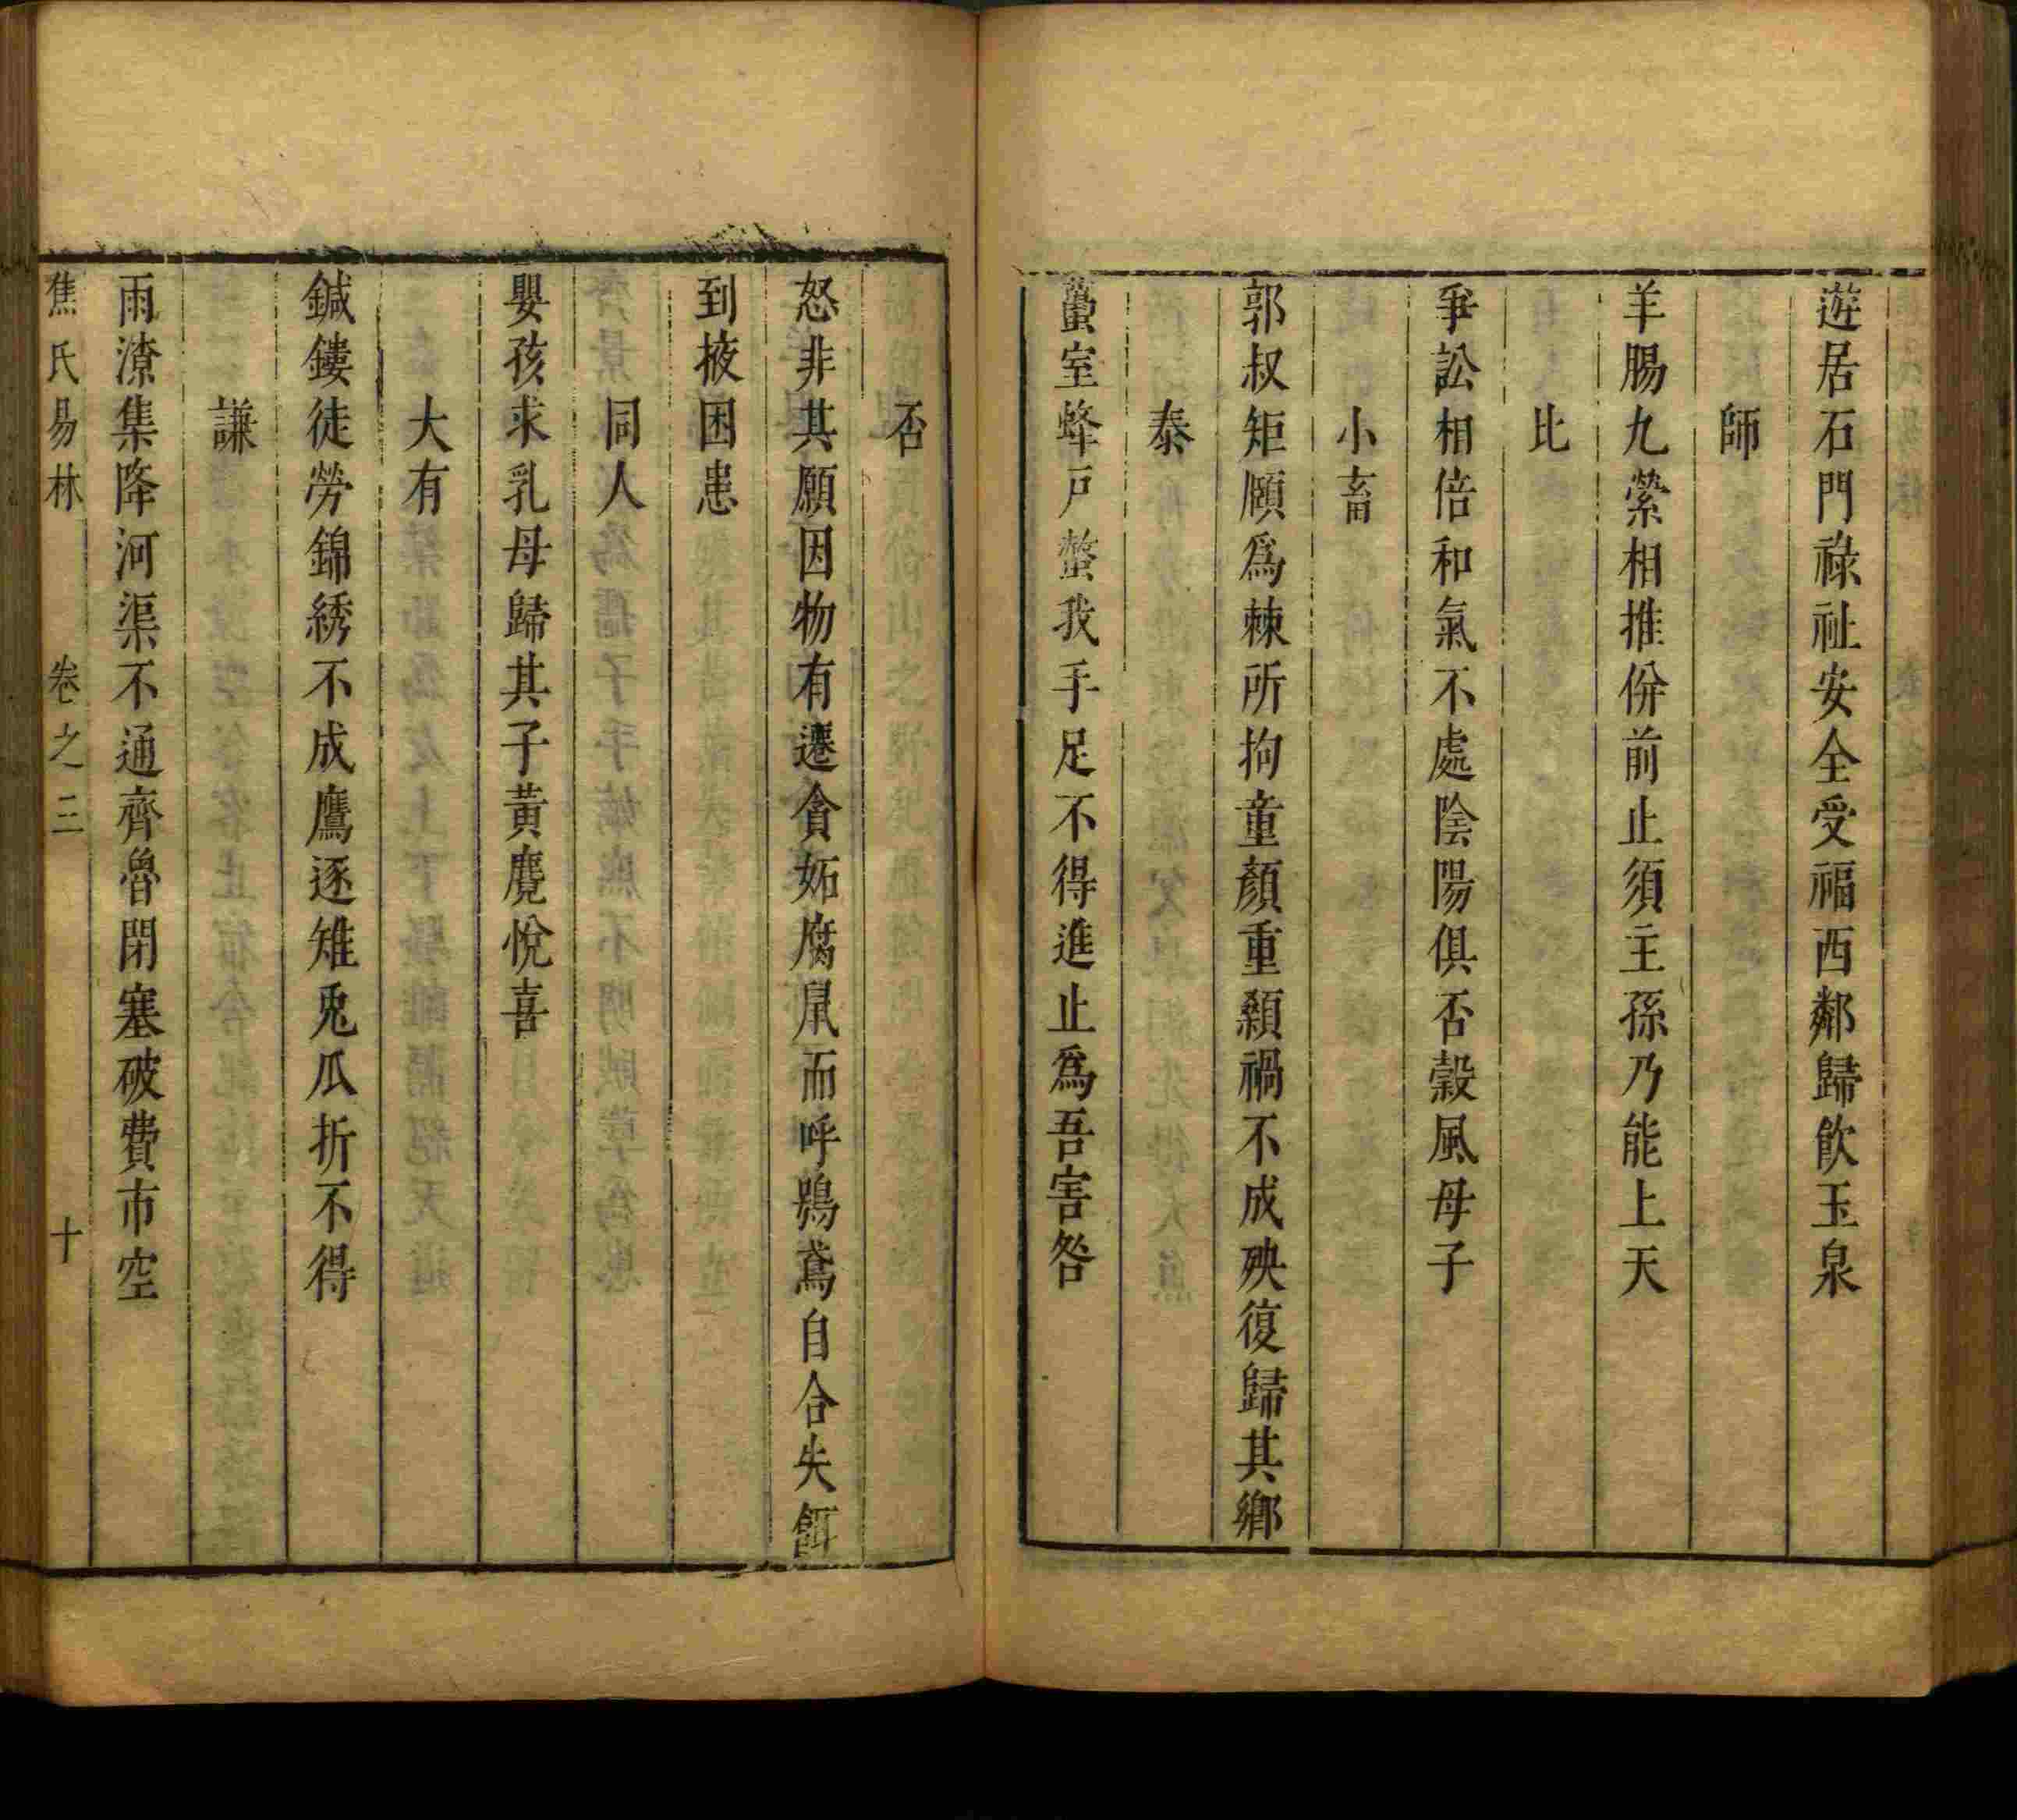 遊居石門祿祉安全受福西鄰歸飲玉泉
師
羊腸九縈相推併前止須王孫乃能上天
比
爭訟相倍和氣不處陰陽俱否穀風母子
小畜
郭叔矩頤為棘所拘童顏重顙禍不成殃復歸其鄉
泰
蠆室蜂戶螫我手足不得進止為吾害咎
否
怒非其願因物有遷貪妬腐鼠而呼鵶鳶自合失餌
到掖困患
同人
嬰孩求乳母歸其子黃麑悅喜
大有
鍼鏤徒勞錦綉不成鷹逐雉兎爪折不得
謙
雨潦集降河渠不通齊魯閉塞破費市空
焦氏易林 卷之三 十